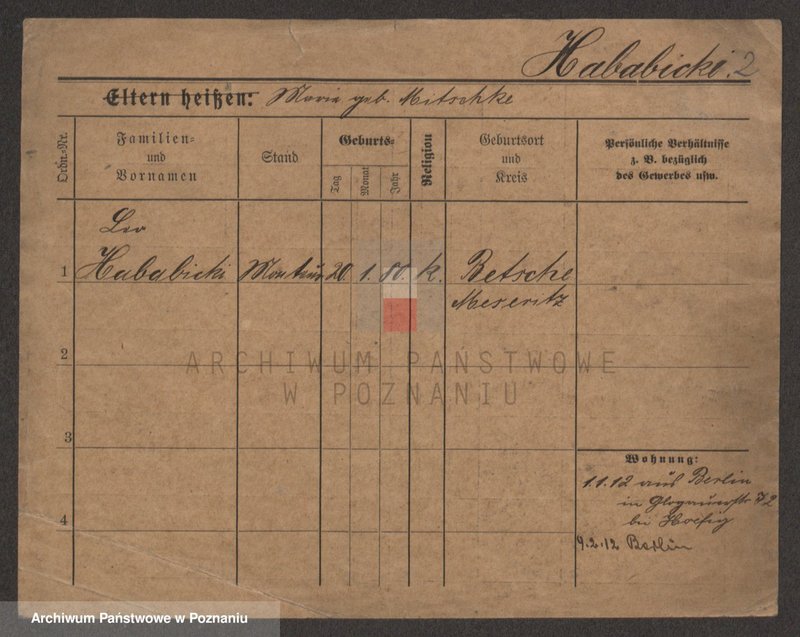 Hababicki. 2
Eltern heißen: Maria geb. Mitschke
Ordn.-Nr.
Familien-
und
Vornamen
Stand
Geburts-
Tag
Monat
Jahr
Religion
Geburtsort
und
Kreis
Persönliche Verhältnisse
z. B. bezüglich
des Gewerbes usw.
Leo
1 Hababicki Monteur 20. 1. 80. k. Betsche
Meseritz
2
3
4
Wohnung:
1.1.12 aus Berlin
in Glogauerstr
bei
9.2.12 Berlin
ARCHIWUM PAŃSTWOWE
W POZNANIU
Archiwum Państwowe w Poznaniu